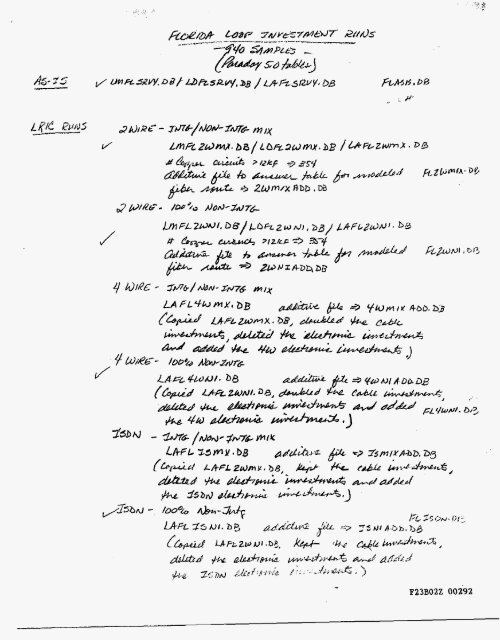 FLORIDA LOOP INVESTMENT RUNS
- 940 SAMPLES -
(Paradox 5.0 tables)
AS-IS ✓ LMFLSRVY.DB / LDFLSRVY.DB / LAFLSRVY.DB FLASIS.DB
LRIC RUNS 2WIRE - INTG/NON-INTG MIX
✓ LMFL2WMX.DB / LDFL2WMX.DB / LAFL2WMX.DB
# Copper circuits >12KF => 354
Additive file to answer table for modeled FL2WMIX.DB
fiber route => 2WMIXADD.DB
2 WIRE - 100% NON-INTG
✓ LMFL2WNI.DB / LDFL2WNI.DB / LAFL2WNI.DB
# Copper circuits >12KF => 354
Additive file to answer table for modeled FL2WNI.DB
fiber route => 2WNIADD.DB
4 WIRE - INTG/NON-INTG MIX
LAFL4WMX.DB additive file => 4WMIXADD.DB
(Copied LAFL2WMX.DB, doubled the cable
investments, deleted the electronic investments
and added the 4W electronic investments.)
✓ 4 WIRE - 100% NON-INTG
LAFL4WNI.DB additive file => 4WNIADD.DB
(Copied LAFL2WNI.DB, doubled the cable investments,
deleted the electronic investments and added FL4WNI.DB
the 4W electronic investments.)
ISDN - INTG/NON-INTG MIX
LAFLISMX.DB additive file => ISMIXADD.DB
(Copied LAFL2WMX.DB, kept the cable investments,
deleted the electronic investments and added
the ISDN electronic investments.)
✓ ISDN - 100% Non-Intg FLISDN.DB
LAFLISNI.DB additive file => ISNIADD.DB
(Copied LAFL2WNI.DB, Kept the cable investments,
deleted the electronic investments and added
the ISDN electronic investments.)
F23B02Z 00292